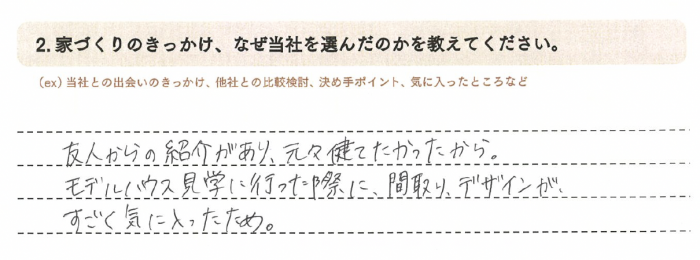 2. 家づくりのきっかけ、なぜ当社を選んだのかを教えてください。
（ex）当社との出会いのきっかけ、他社との比較検討、決め手ポイント、気に入ったところなど
友人からの紹介があり、元々健てたかったから。
モデルハウス見学に行った際に、間取り、デザインが、
すごく気に入ったため。